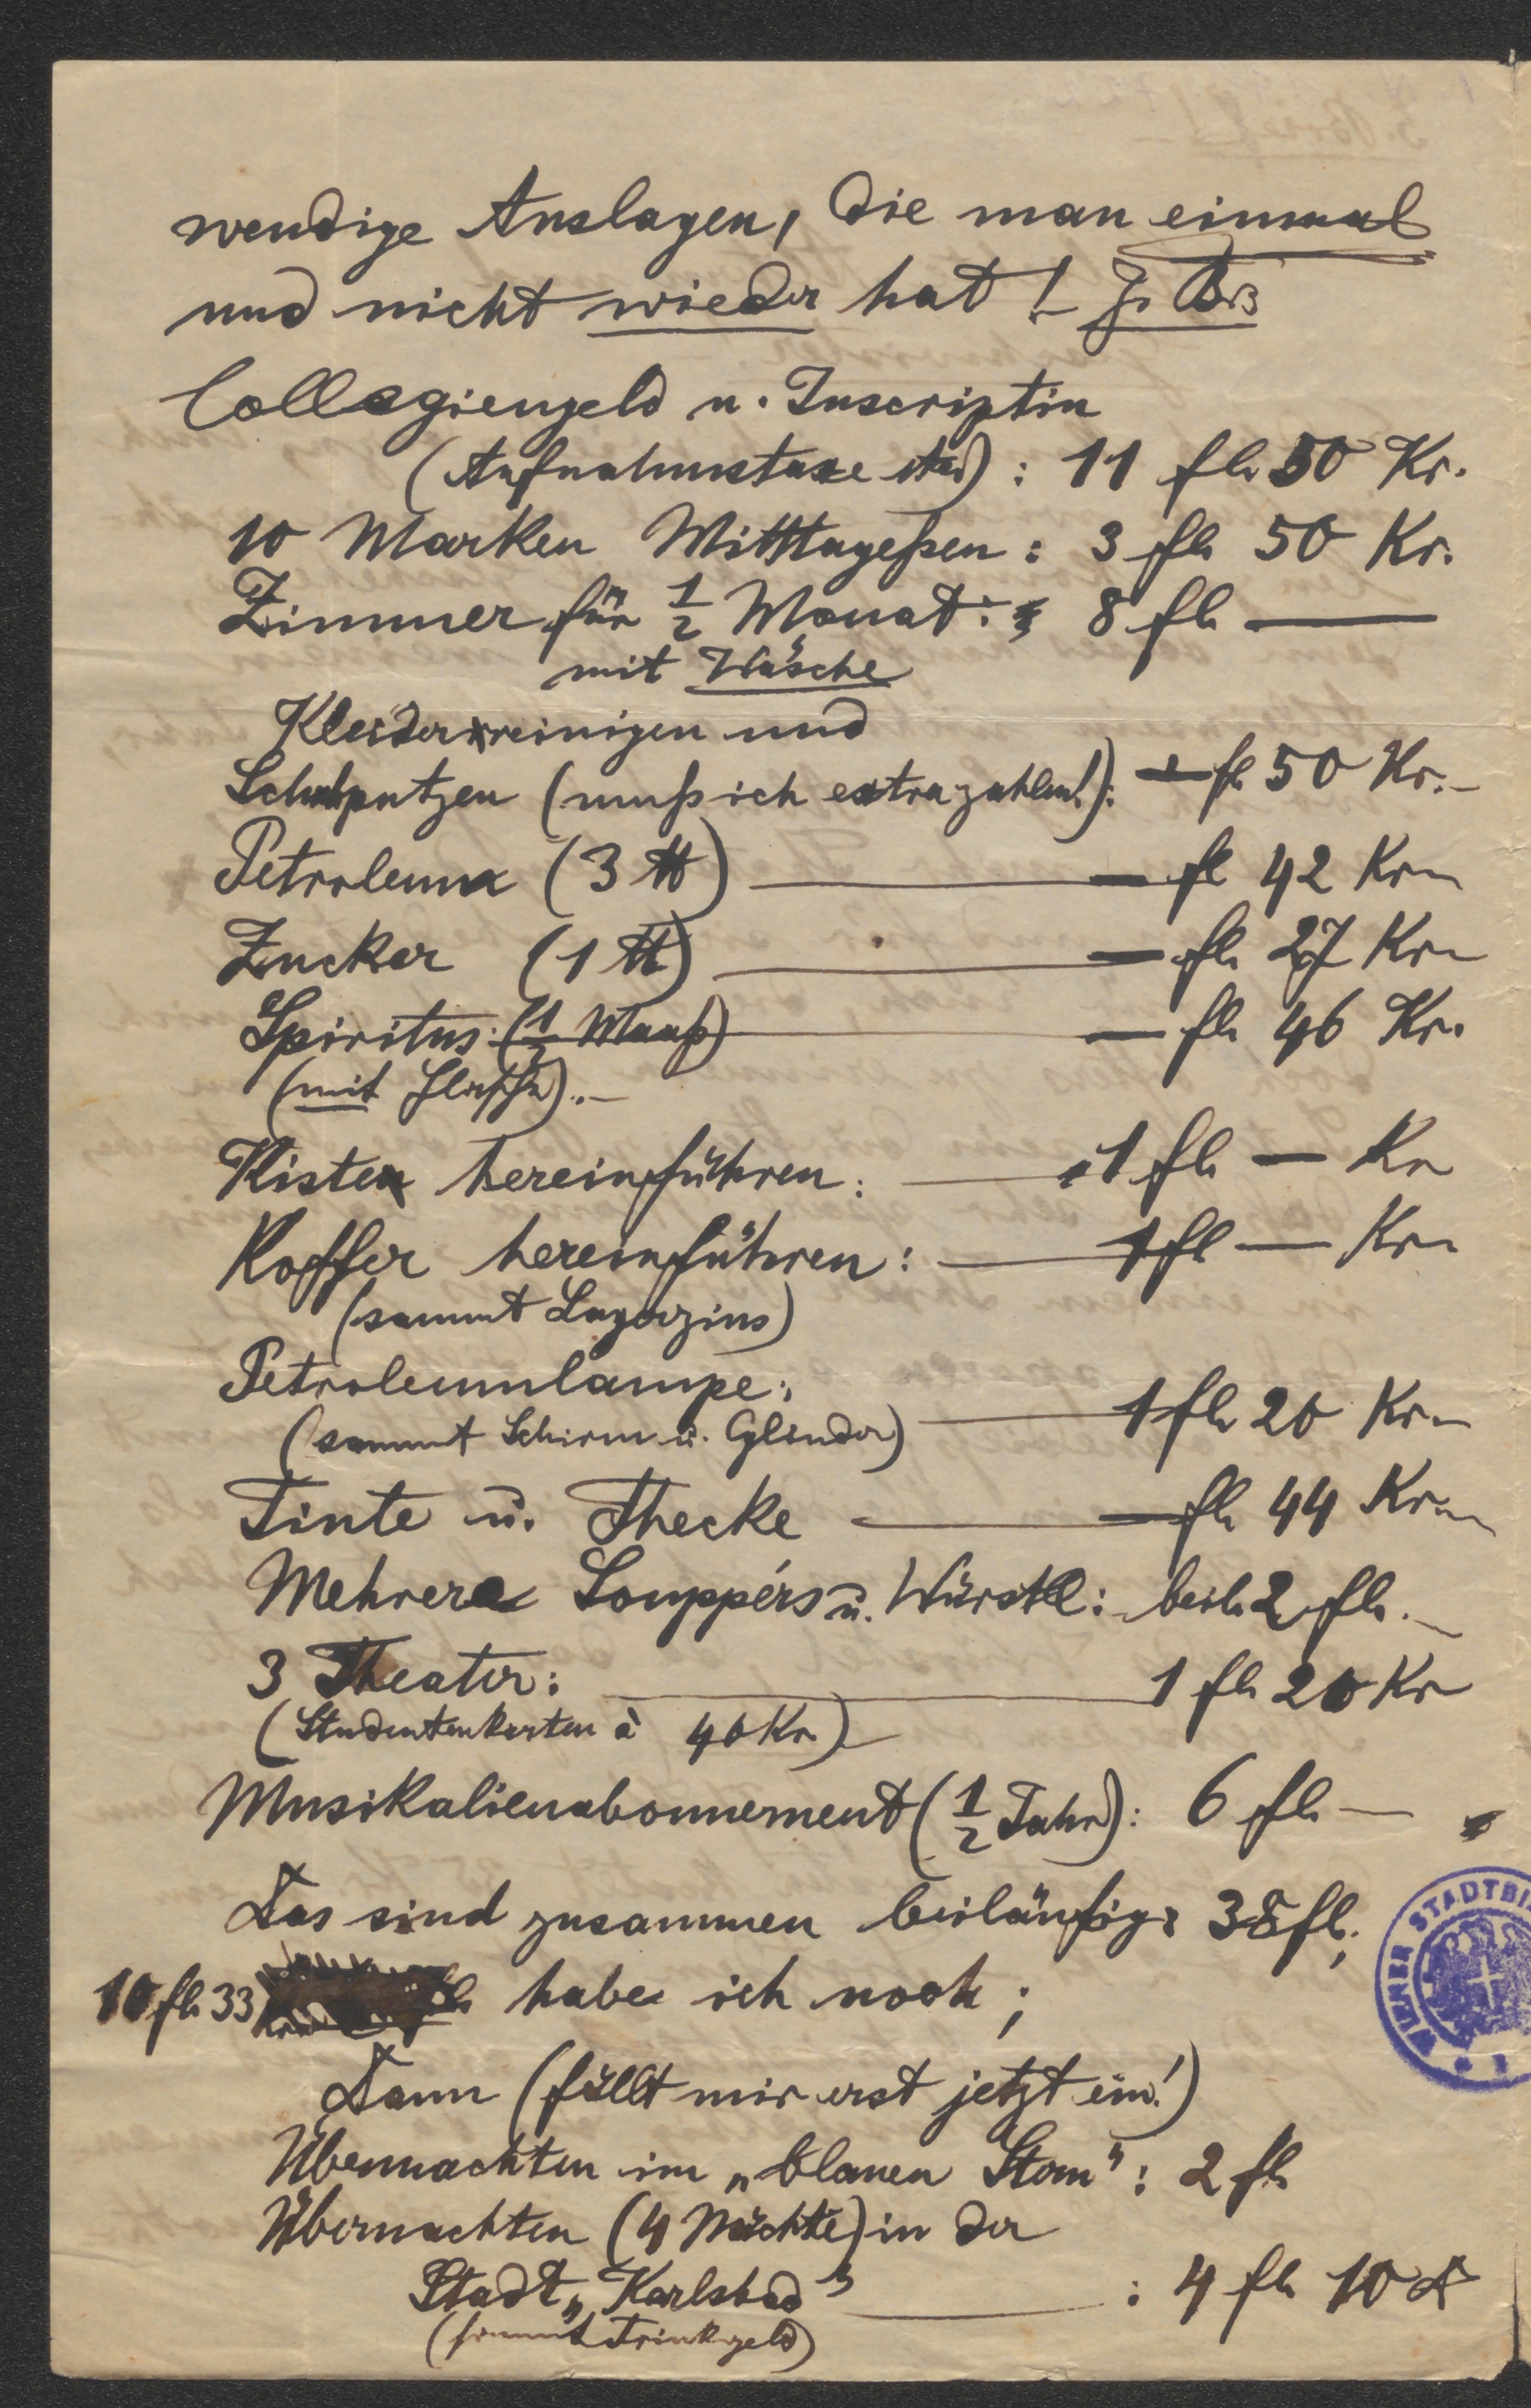 wendige Auslagen, die man einmal
und nicht wieder hat! z. B.
Collegiengeld u. Inscription
(Aufnahmstaxe etc) : 11 fl. 50 Kr.
10 Marken Mittagessen : 3 fl. 50 Kr.
Zimmer für 1/2 Monat : 8 fl. —
mit Wäsche
Kleiderreinigen und
Schuhputzen (muß ich extra zahlen!) : — fl 50 Kr.–
Petroleum (3 ℔) — fl 42 Kr.
Zucker (1 ℔) — fl. 27 Kr.
Spiritus (1/2 Maaß) — fl. 46 Kr.
(mit Flasche).–
Kiste hereinführen : — 1 fl. — Kr.
Koffer hereinführen : — 1 fl — Kr.
(sammt Lagerzins)
Petroleumlampe :
(sammt Schirm u. Cylinder) — 1 fl. 20 Kr.
Tinte u. Thecke — fl. 44 Kr.
Mehrere Souppérs u. Würstl : beil. 2 fl.
3 Theater : — 1 fl. 20 Kr
(Studentenkarten à 40 Kr.)
Musikalienabonnement (1/2 Jahr) : 6 fl. —
Das sind zusammen beiläufig : 38 fl.;
10 fl. 33 habe ich noch ;
Dann (fällt mir erst jetzt ein!)
Übernachten im „blauen Stern" : 2 fl
Übernachten (4 Nächte) in der
Stadt „Karlsbad" — : 4 fl. 10 x
(sammt Trinkgeld)
WIENER STADTBI